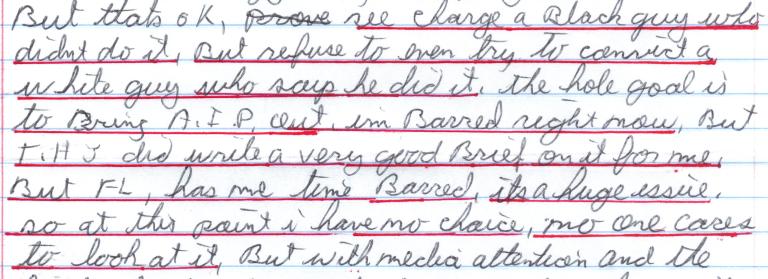 But thats OK, prove see charge a Black guy who
didnt do it, But refuse to even try to convict a
white guy who says he did it. the hole goal is
to Bring A.I.P, out, im Barred right now, But
I.H.J did write a very good Brief on it for me,
But FL, has me time Barred, its a huge issue.
so at this point i have no choice, no one cares
to look at it, But with media attention and the